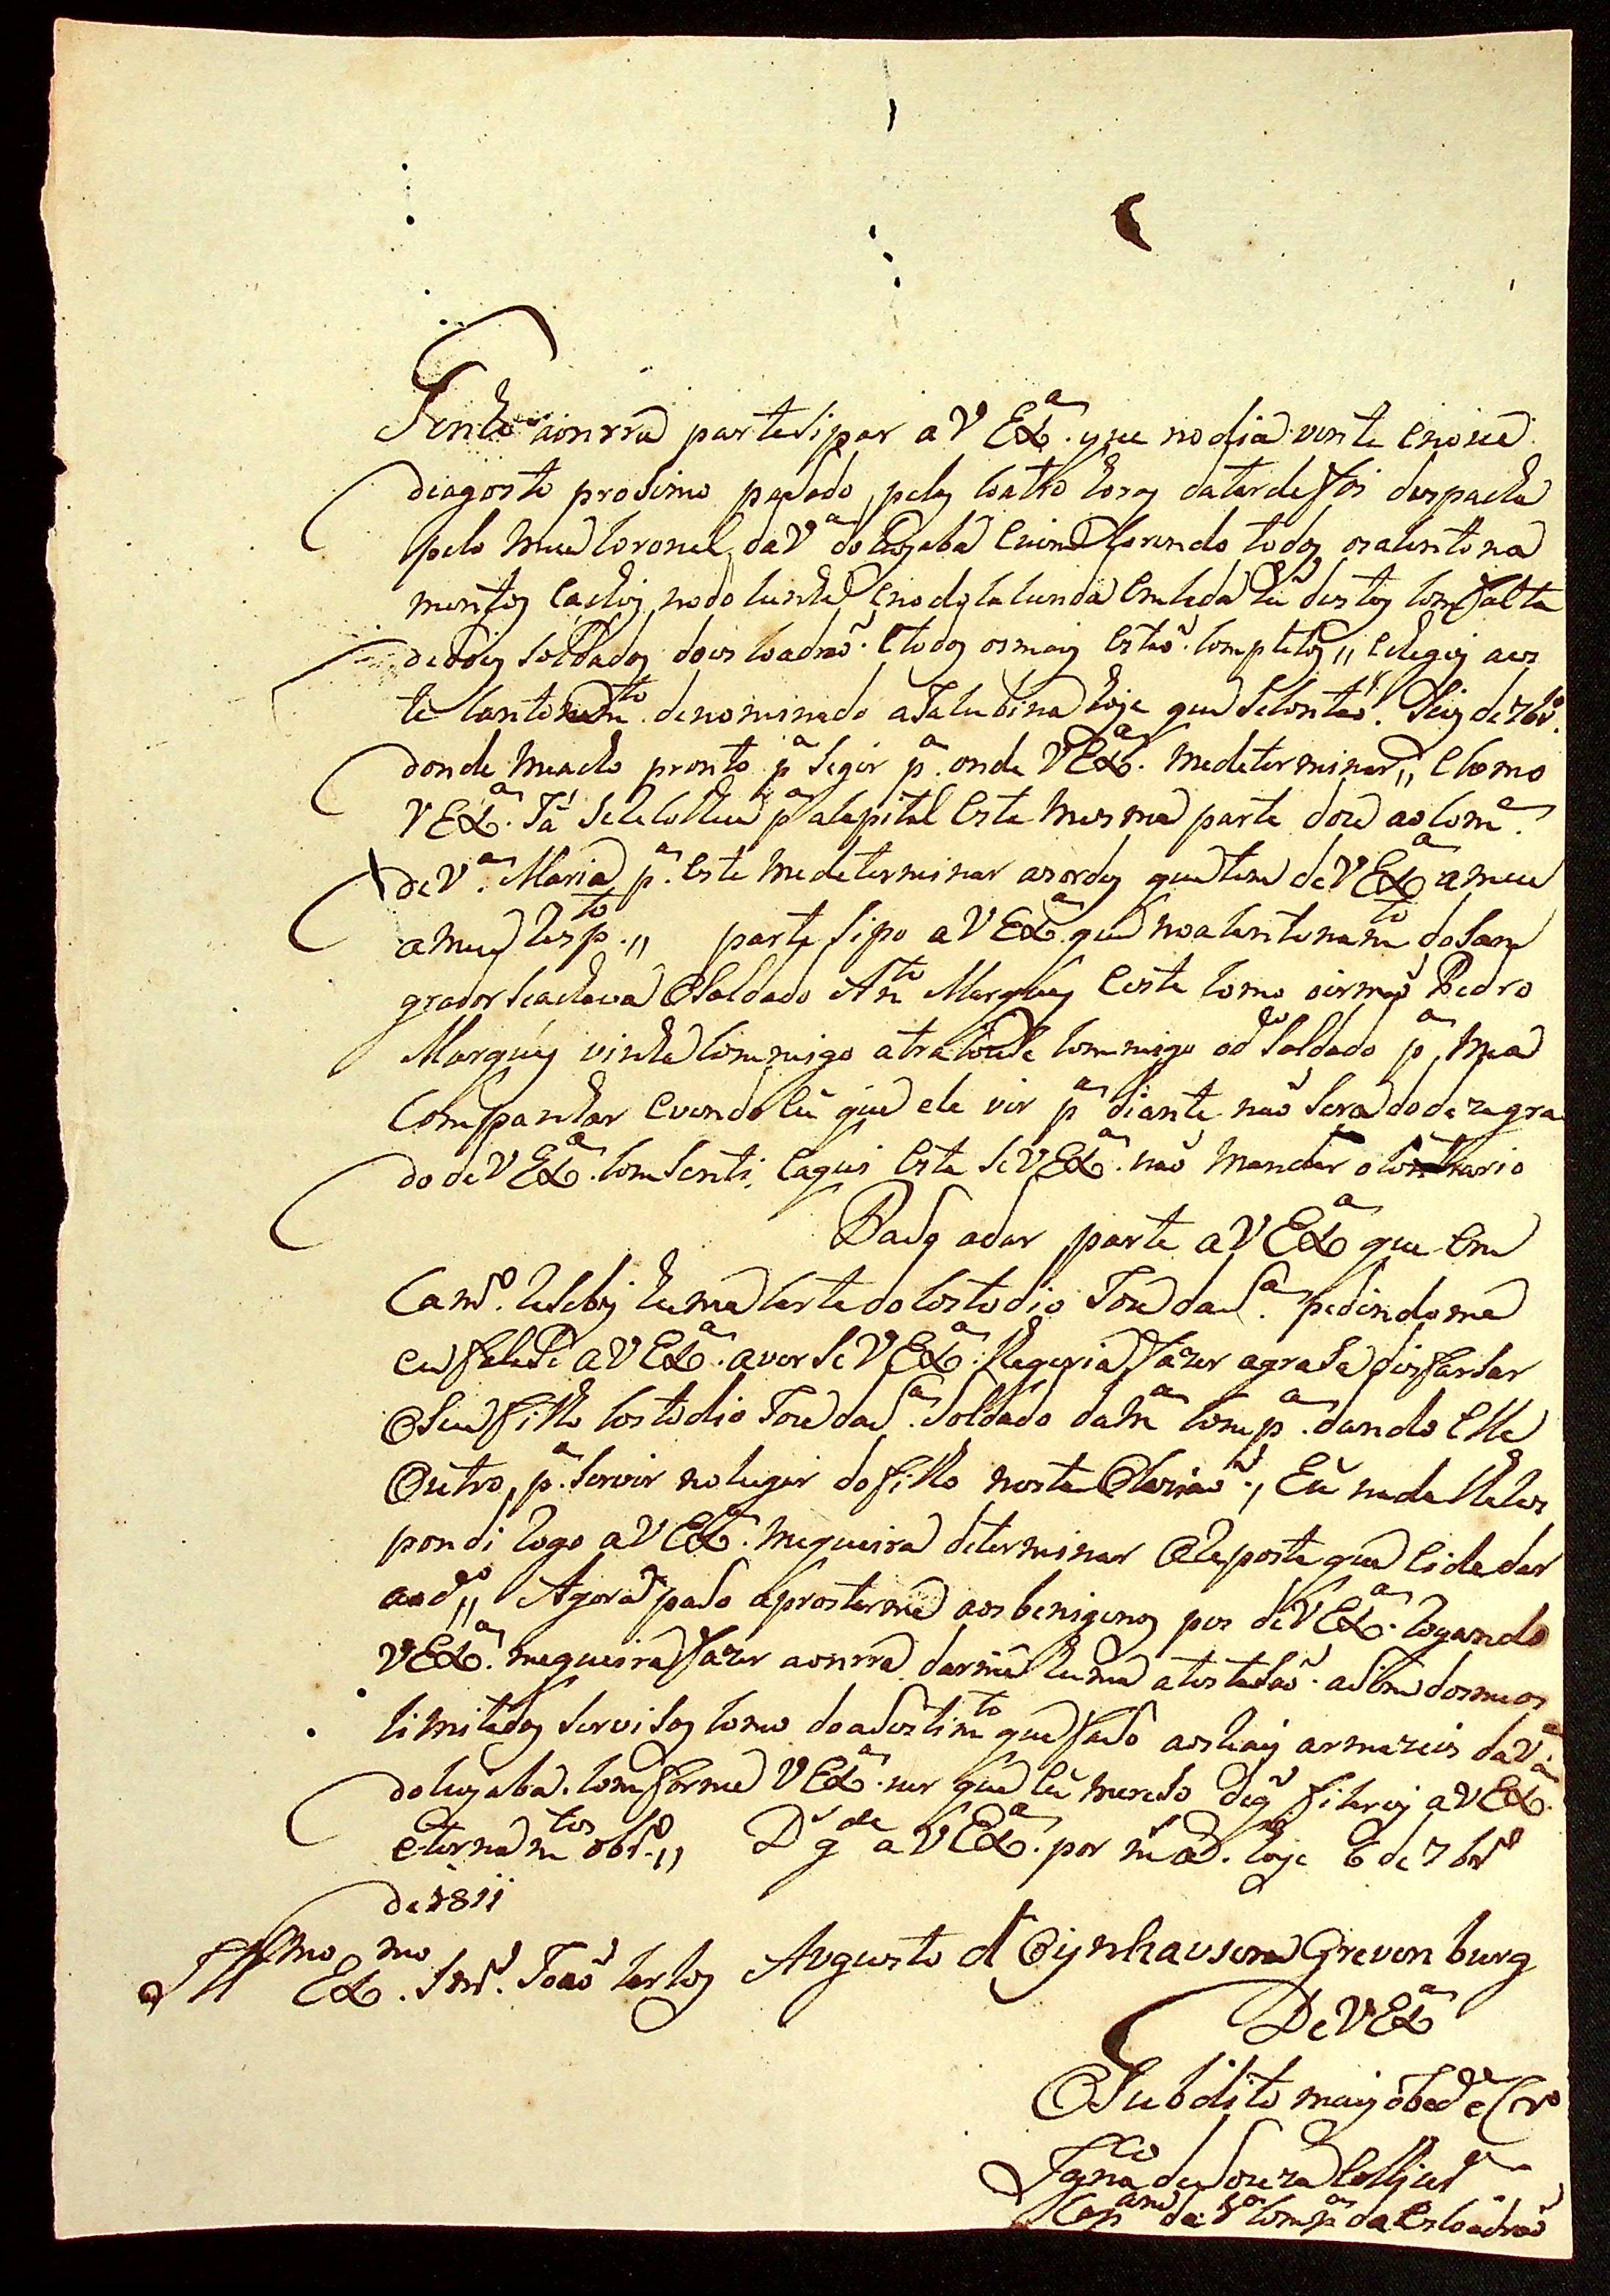 Tenho aonrra partesipar a V Exª. que no dia vinte enove
deagosto prosimo pasado, pelas coatro horas datarde foi despacha
pelo meu Coronel, da Vª do Cuyaba e vim Corendo todos os acantona
mentos e achei no do Cunha e no do Lacunda em cada hũ destes com falta
de dois soldados do es coadraõ. e todos os mais estaõ completos,, e cheguei aes
te Cantonamto. denominado a Jacubina hoje que se contaõ. seis de 7brº.
donde me acho pronto pª segir pª. onde V Exª. me determinar,, e como
V Exª. Já se recolheu pª a capital esta mesma parte dou ao comᵉ.
de Vª. Maria pª. este me determinar as ordes que tem de V Exª a meu
a meu resp.to,, partesipo a V Exª. que no acantonamto do San
grador se achava o Soldado Anto Marques e este como o irmaõ Pedro
Marques vinha commigo a tracouse commigo o dº Soldado pª. me a
Companhar e vendo eu que ele vir pª diante naõ sera do dezagra
do de V Exª. comsenti, e aqui esta se V Exª. naõ mandar o contrario
Paso a dar parte a V Exª que em
Camº. resebi huma carta do Costodio Jose da Sª. pedindo me
eu falase a V Exª. a ver se V Exª. lhe queria fazer a grasa disfarsar
o seu filho Costodio Jose da Sª. Soldado da mª compª. dando elle
outro, pª. servir no lugar do filho nesta ocaziaõ., Eu nada lhe res
pondi rogo a V Exª. me queira determinar a reposta que ei de dar
ao dº,, Agora paso a prostarme aos benignos pes de V Exª. rogando
V Exª. me queira fazer aonrra darme huma atestasaõ. asim dos meos
limitados servisos como do asestimto que faso aos reais armazeis da Vª.
do Cuyaba. comforme V Exª. ver que eu mereso de q ficarei a V Exª.
eternam.tes obrº.,, D.s g.de a V Exª. por m a. hoje 6 de 7brº
de 1811
Illmo Exmo. Snr. Joaõ Carlos Augusto d'Oeynhausen Grevenburg
De V Exª
O Subdito mais obedᵉ e Crº
Ignaco de Souza
Capam da Compª da Escoadraõ